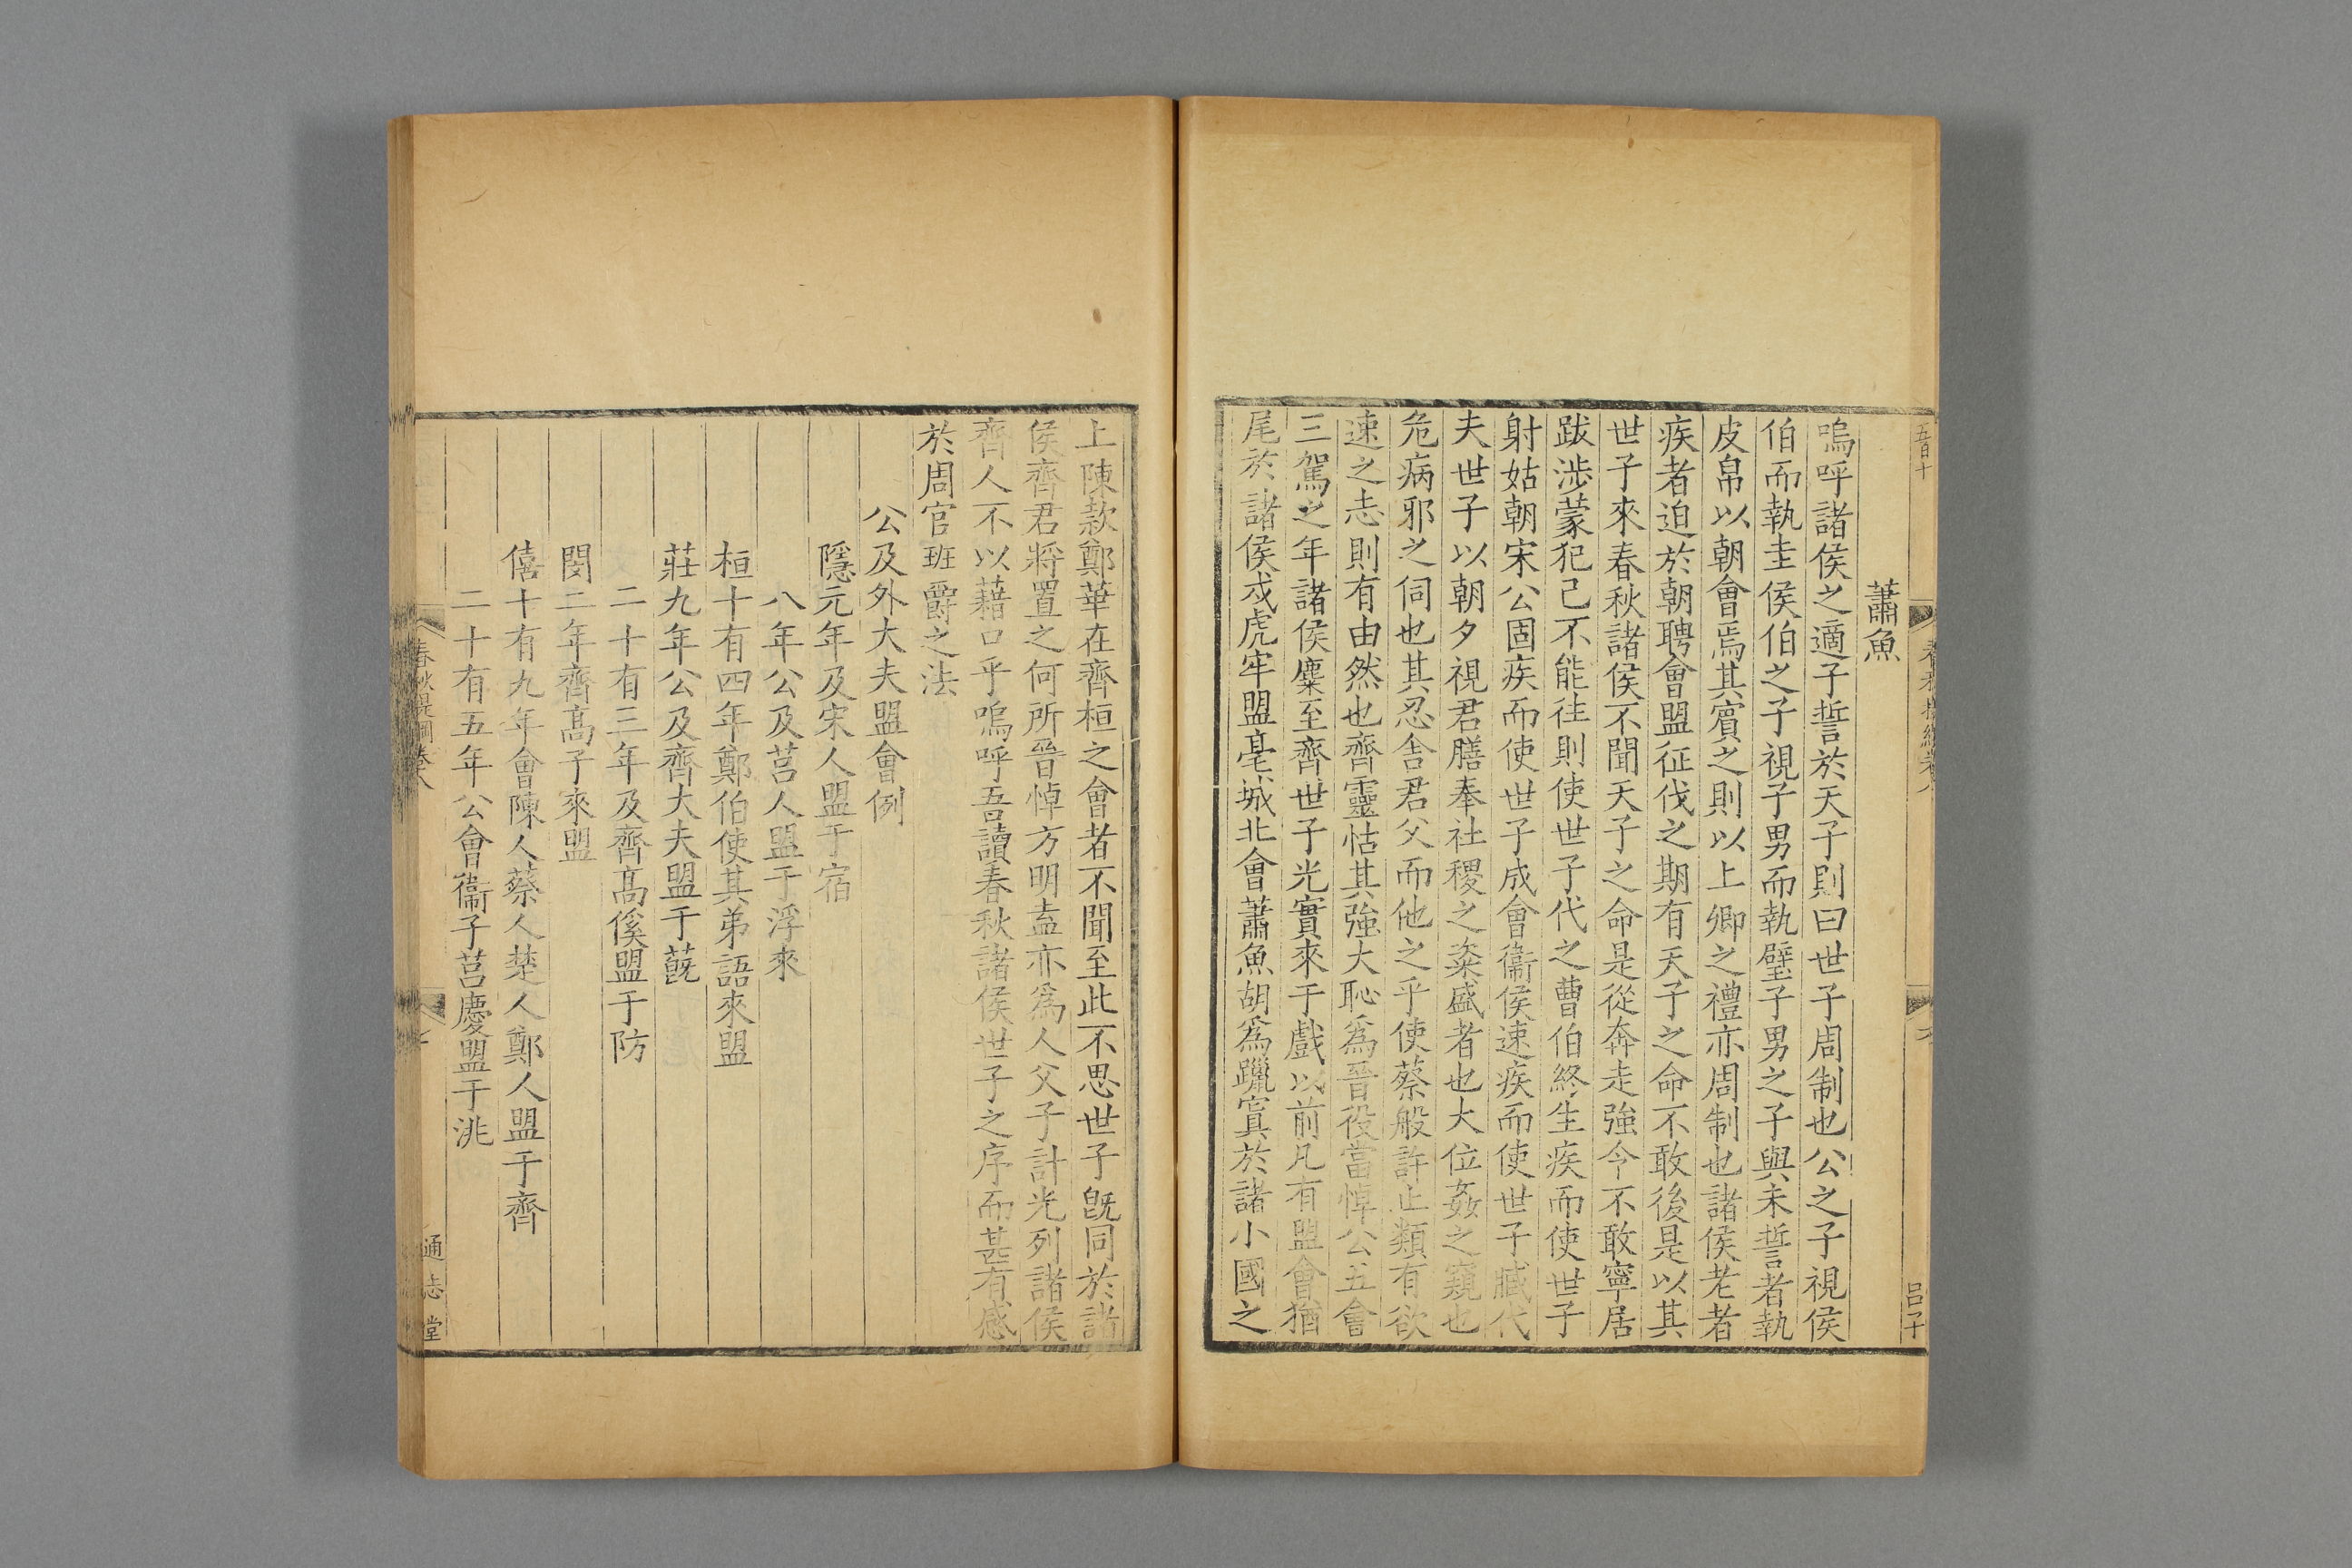 五百十
蕭魚
嗚呼諸侯之適子誓於天子則曰世子周制也公之子視侯
伯而執圭侯伯之子視子男而執璧子男之子與未誓者執
皮帛以朝會焉其賓之則以上卿之禮亦周制也諸侯老者
疾者迫於朝聘會盟征伐之期有天子之命不敢後是以其
世子來春秋諸侯不聞天子之命是從奔走強令不敢寧居
跋涉蒙犯己不能往則使世子代之曹伯終生疾而使世子
射姑朝宋公固疾而使世子成會衞侯速疾而使世子臧代
夫世子以朝夕視君膳奉社稷之粢盛者也大位姦之窺也
危病邪之伺也其忍舍君父而他之乎使蔡般許止類有欲
速之志則有由然也齊靈怙其強大恥爲晉役當悼公五會
三駕之年諸侯麇至齊世子光實來于戲以前凡有盟會猶
尾於諸侯戍虎牢盟亳城北會蕭魚胡爲躐寘於諸小國之
呂子
上陳款鄭華在齊桓之會者不聞至此不思世子旣同於諸
侯齊君將置之何所晉悼方明盍亦爲人父子計光列諸侯
齊人不以藉口乎嗚呼吾讀春秋諸侯世子之序而甚有感
於周官班爵之法
公及外大夫盟會例
隱元年及宋人盟于宿
八年公及莒人盟于浮來
桓十有四年鄭伯使其弟語來盟
莊九年公及齊大夫盟于蔇
二十有三年及齊高傒盟于防
閔二年齊高子來盟
僖十有九年會陳人蔡人楚人鄭人盟于齊
二十有五年公會衞子莒慶盟于洮
春秋提綱卷八
通志堂